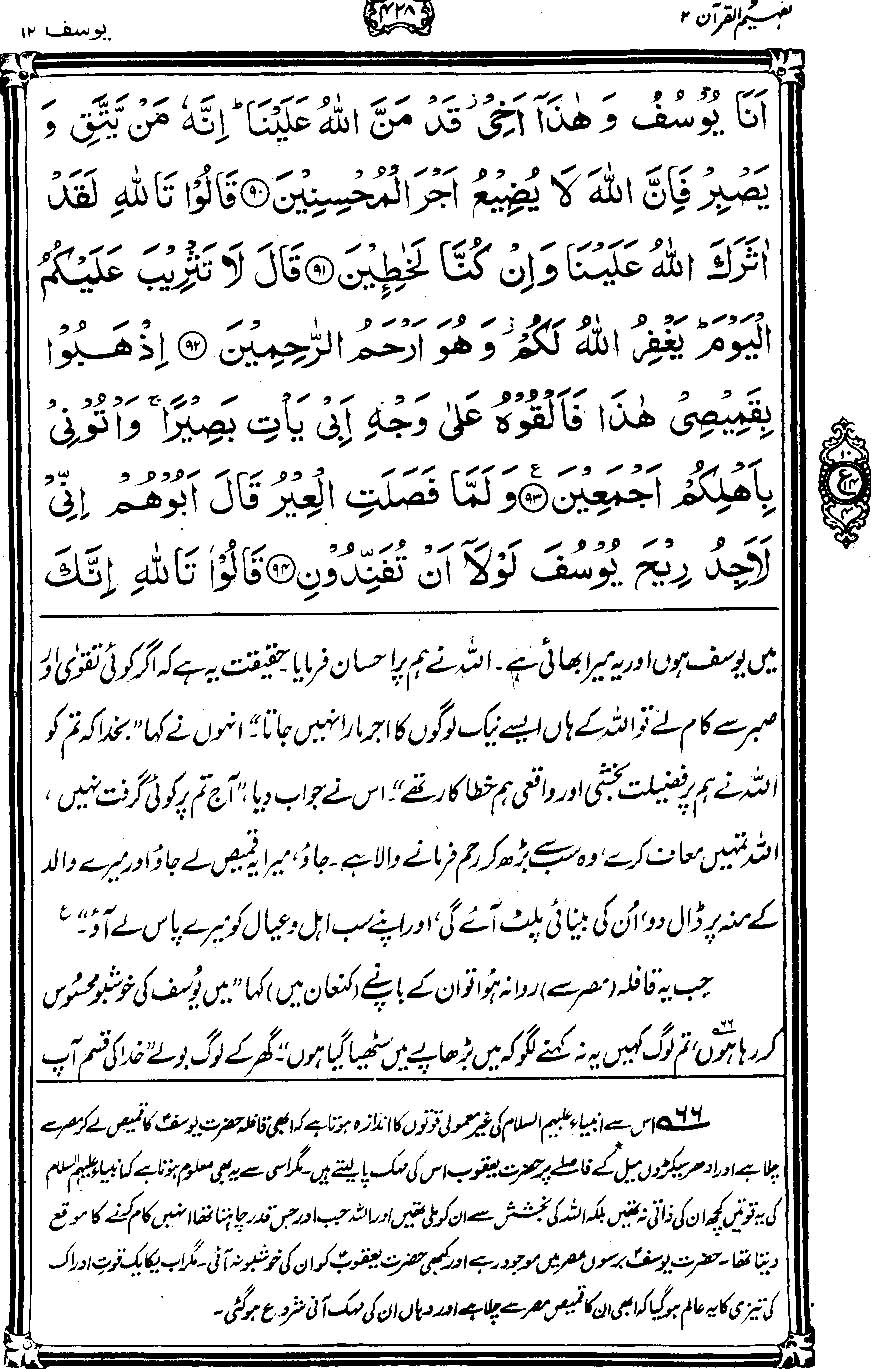 تفہیم القرآن ۲
۴۲۸
یوسف ۱۲
اَنَا یُوْسُفُ وَ هٰذَاۤ اَخِیْ ؗ قَدْ مَنَّ اللّٰهُ عَلَیْنَا ؕ اِنَّهٗ مَنْ یَّتَّقِ وَ
یَصْبِرْ فَاِنَّ اللّٰهَ لَا یُضِیْعُ اَجْرَ الْمُحْسِنِیْنَ ﴿۹۰﴾ قَالُوْا تَاللّٰهِ لَقَدْ
اٰثَرَكَ اللّٰهُ عَلَیْنَا وَاِنْ كُنَّا لَخٰطِـِٕیْنَ ﴿۹۱﴾ قَالَ لَا تَثْرِیْبَ عَلَیْكُمُ
الْیَوْمَ ؕ یَغْفِرُ اللّٰهُ لَكُمْ ؗ وَ هُوَ اَرْحَمُ الرّٰحِمِیْنَ ﴿۹۲﴾ اِذْهَبُوْا
بِقَمِیْصِیْ هٰذَا فَاَلْقُوْهُ عَلٰى وَجْهِ اَبِیْ یَاْتِ بَصِیْرًا ۚ وَاْتُوْنِیْ
بِاَهْلِكُمْ اَجْمَعِیْنَ ﴿۹۳﴾ ع وَ لَمَّا فَصَلَتِ الْعِیْرُ قَالَ اَبُوْهُمْ اِنِّیْ
لَاَجِدُ رِیْحَ یُوْسُفَ لَوْلَاۤ اَنْ تُفَنِّدُوْنِ ﴿۹۴﴾ قَالُوْا تَاللّٰهِ اِنَّكَ
۱۰
ع
۴
میں یوسف ہوں اور یہ میرا بھائی ہے۔ اللہ نے ہم پر احسان فرمایا۔ حقیقت یہ ہے کہ اگر کوئی تقویٰ اور
صبر سے کام لے تو اللہ کے ہاں ایسے نیک لوگوں کا اجر مارا نہیں جاتا“۔ انہوں نے کہا ”بخدا کہ تم کو
اللہ نے ہم پر فضیلت بخشی اور واقعی ہم خطا کار تھے“۔ اس نے جواب دیا، ”آج تم پر کوئی گرفت نہیں،
اللہ تمہیں معاف کرے، وہ سب سے بڑھ کر رحم فرمانے والا ہے۔ جاؤ، میرا یہ قمیص لے جاؤ اور میرے والد
کے منہ پر ڈال دو، اُن کی بینائی پلٹ آئے گی، اور اپنے سب اہل و عیال کو میرے پاس لے آؤ“۔ ع
جب یہ قافلہ (مصر سے) روانہ ہُوا تو ان کے باپ نے (کنعان میں) کہا ”میں یُوسف کی خوشبو محسُوس
کر رہا ہوں،۶۶ تم لوگ کہیں یہ نہ کہنے لگو کہ میں بڑھاپے میں سٹھیا گیا ہوں“۔ گھر کے لوگ بولے ”خدا کی قسم آپ
۶۶ اس سے انبیاء علیہم السلام کی غیر معمولی قوتوں کا اندازہ ہوتا ہے کہ ابھی قافلہ حضرت یوسفؑ کا قمیص لے کر مصر سے
چلا ہے اور ادھر سیکڑوں میل کے فاصلے پر حضرت یعقوب اس کی مہک پا لیتے ہیں۔ مگر اسی سے یہ بھی معلوم ہوتا ہے کہ انبیاء علیہم السلام
کی یہ قوتیں کچھ ان کی ذاتی نہ تھیں بلکہ اللہ کی بخشش سے ان کو ملی تھیں اور اللہ جب اور جس قدر چاہتا تھا انہیں کام کرنے کا موقع
دیتا تھا۔ حضرت یوسفؑ برسوں مصر میں موجود رہے اور کبھی حضرت یعقوبؑ کو ان کی خوشبو نہ آئی۔ مگر اب یکایک قوتِ ادراک
کی تیزی کا یہ عالم ہو گیا کہ ابھی ان کا قمیص مصر سے چلا ہے اور وہاں ان کی مہک آنی شروع ہو گئی۔